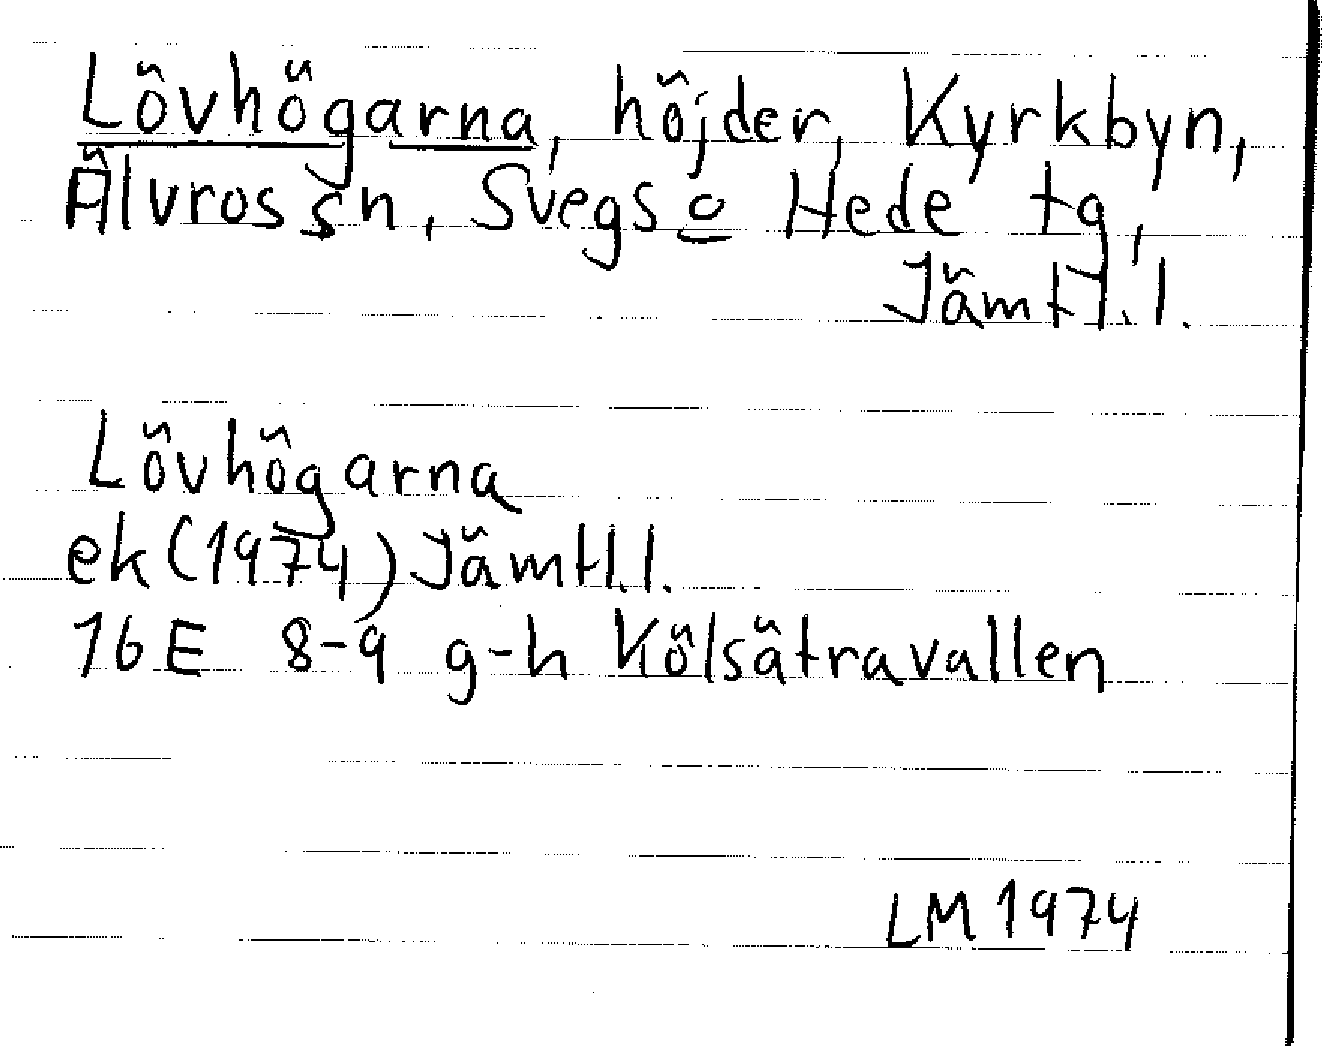 Lövhögarna, höjder, Kyrkbyn,
Älvros sn, Svegs o Hede tg,
Jämtl. l.
Lövhögarna
ek (1974) Jämtl. l.
16E 8-9 g-h Kölsätravallen
LM 1974